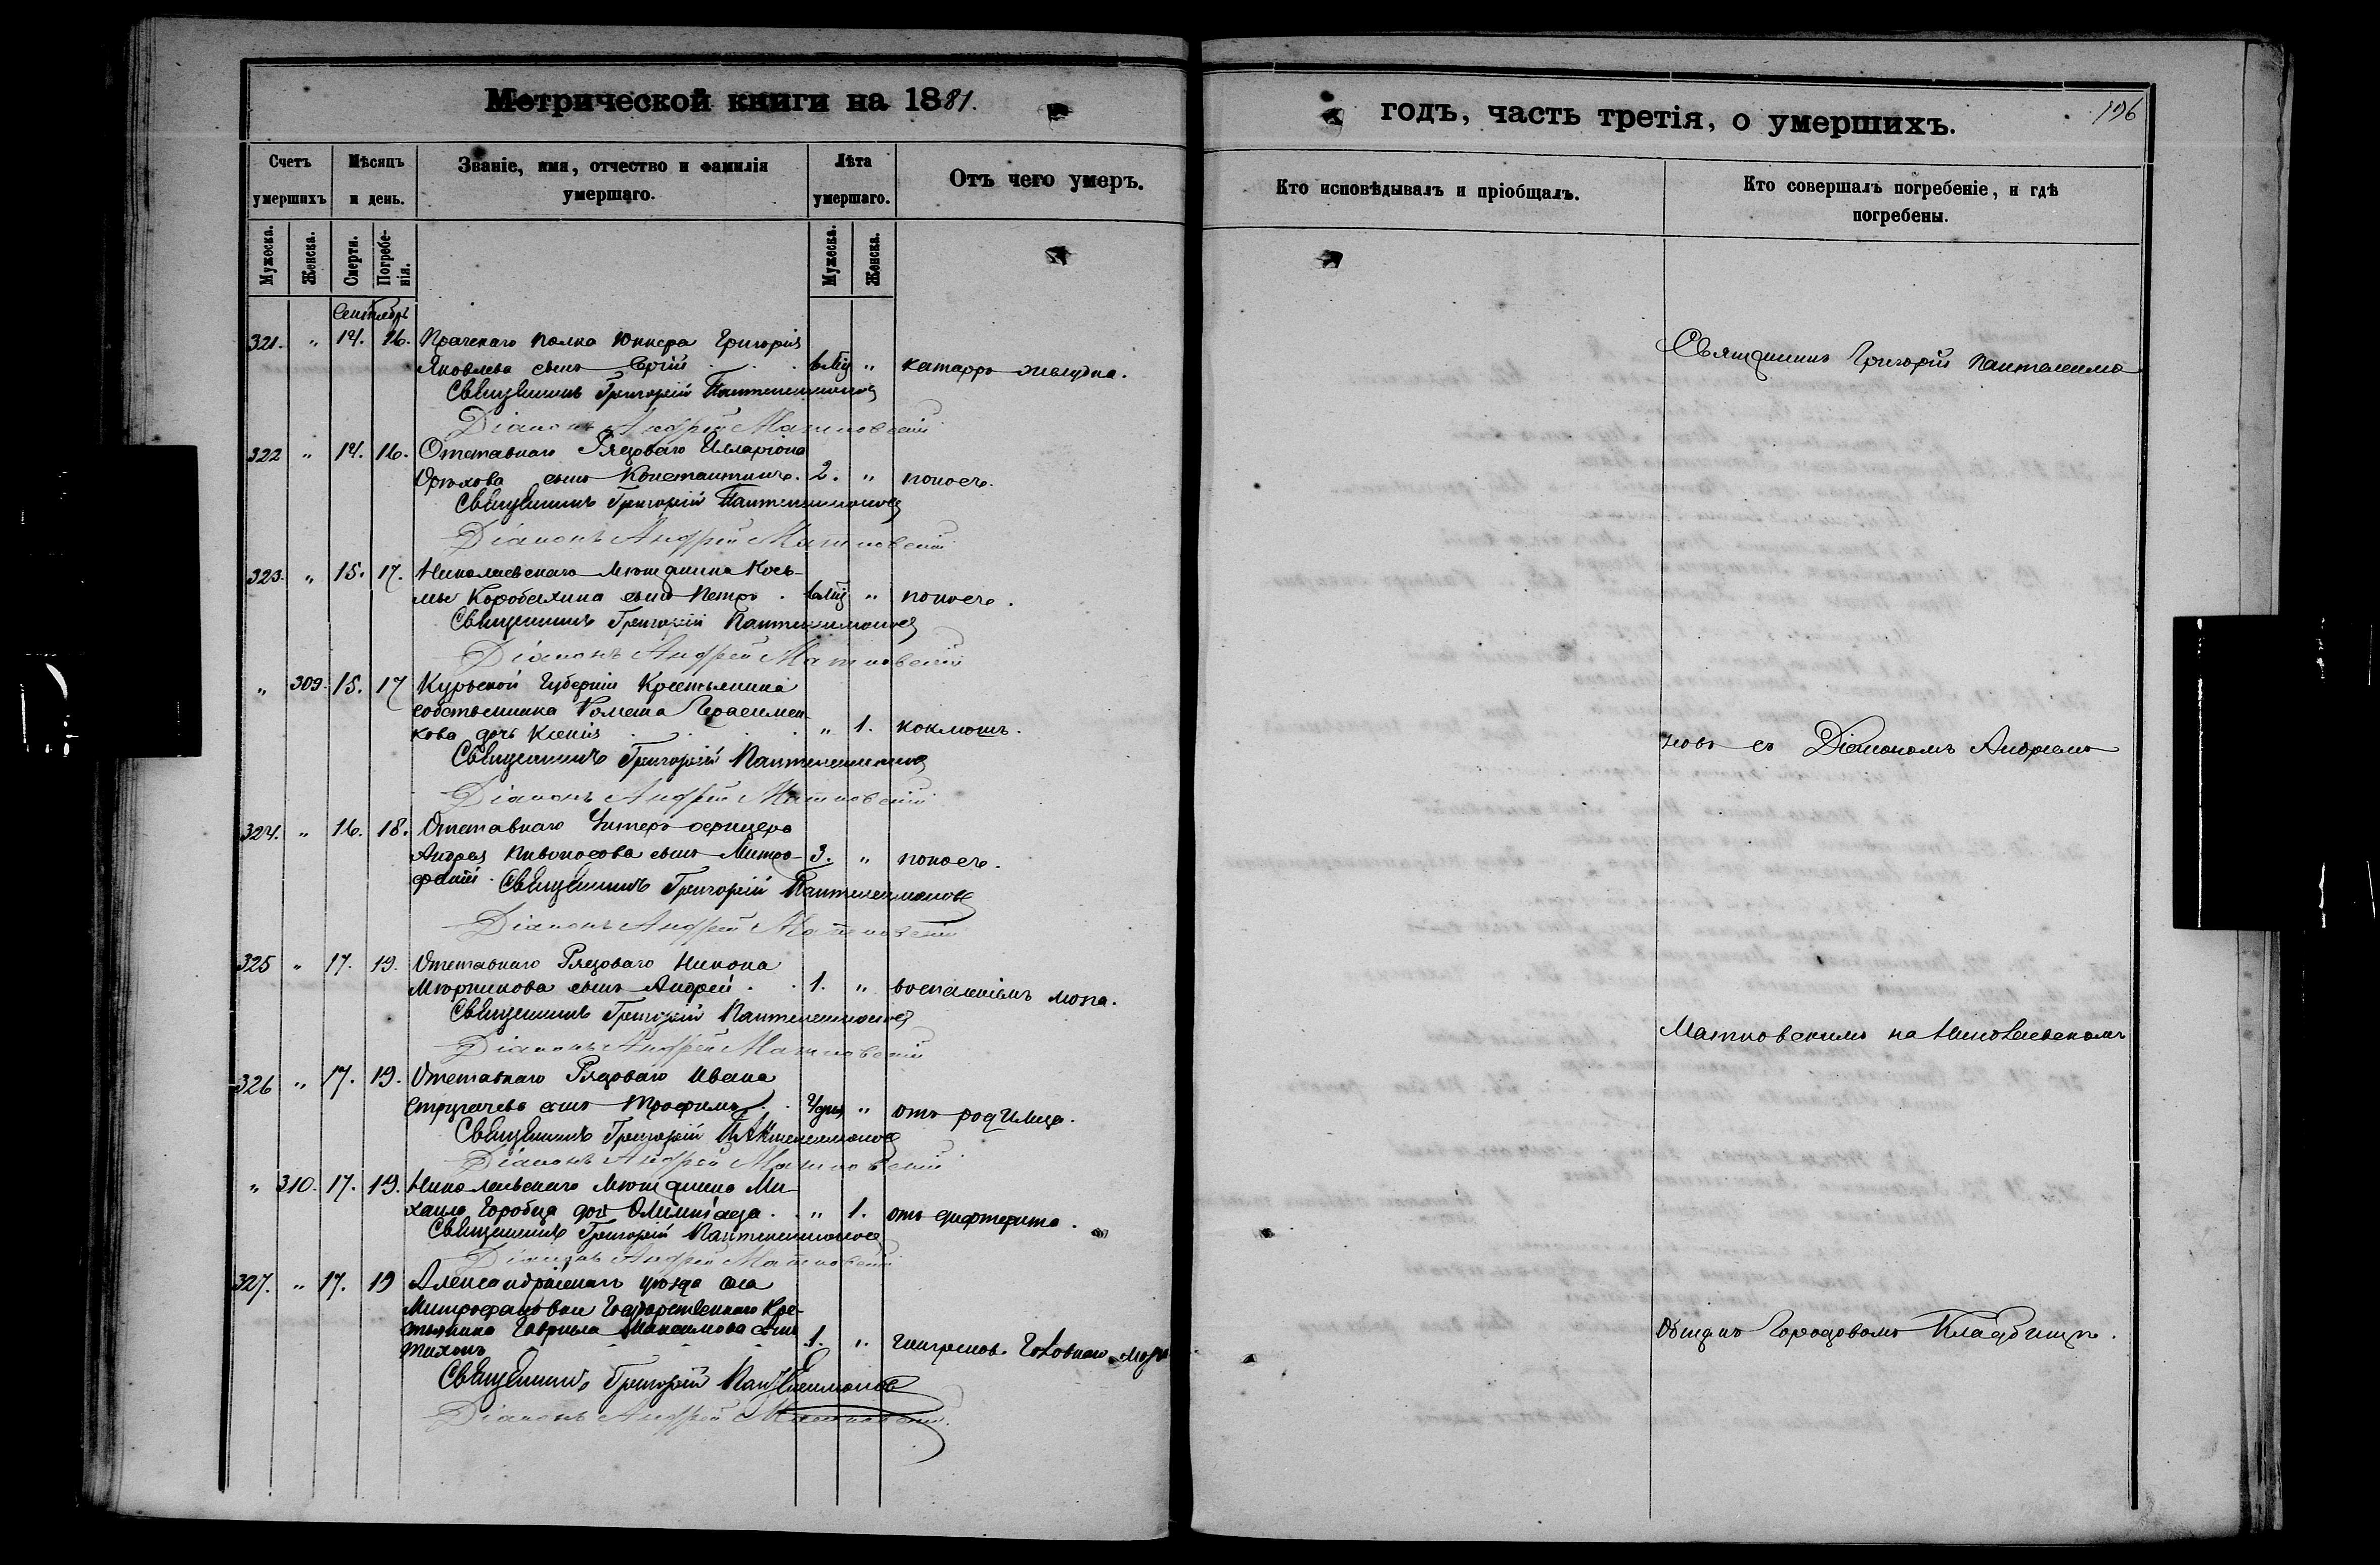 Метрической книги на 1881.
Счетъ умершихъ
Мѣсяцъ и день.
Званіе, имя, отчество и фамилія умершаго.
Лѣта умершаго.
Отъ чего умеръ.
Мужеска.
Женска.
Смерти.
Погребенія.
Мужеска.
Женска.
Сентябрь
321. " 14. 16. Прагскаго полка Юнкера Григорія
Яковлева сынъ " катарръ желудка.
Священникъ Григорій Пантелеимоновъ
Діаконъ Андрей Матковскій
322 " 14. 16. Отставнаго Рядоваго Илларіона
Орѣхова сынъ Константинъ. 2. " поносъ.
Священникъ Григорій Пантелеимоновъ
Діаконъ Андрей Матковскій
323. " 15. 17. Николаевскаго мѣщанина Кось-
мы сынъ Петръ . " поносъ.
Священникъ Григорій Пантелеимоновъ
Діаконъ Андрей Матковскій
" 309. 15. 17 Курской Губерніи Крестьянина
собственника Романа Герасимен-
кова дочь Ксенія " 1. коклюшъ.
Священникъ Григорій Пантелеимоновъ
Діаконъ Андрей Матковскій
324. " 16. 18. Отставнаго Унтеръ офицера
Андрея Кривоносова сынъ Митро- 3. " поносъ.
фаній. Священникъ Григорій Пантелеимоновъ
Діаконъ Андрей Матковскій
325 " 17. 19. Отставнаго Рядоваго Никона
сынъ Андрей . . 1. "
Священникъ Григорій Пантелеимоновъ
Діаконъ Андрей Матковскій
326 " 17. 19. Отставнаго Рядоваго Ивана
сынъ Трофимъ . " отъ родимца.
Священникъ Григорій Пантелеимоновъ
Діаконъ Андрей Матковскій
" 310. 17. 19. Николаевскаго мѣщанина Ми-
хаила Горобца дочь Олимпіада . . " 1. отъ дифтерита.
Священникъ Григорій Пантелеимоновъ
Діаконъ Андрей Матковскій
327. " 17. 19 Александрійскаго уѣзда села
Митрофановки Государственнаго Кре-
стьянина Гавріила Максимова сынъ
Тихонъ 1. " головнаго
Священникъ Григорій Пантелеимоновъ
Діаконъ Андрей Матковскій.
годъ, часть третія, о умершихъ.
196
Кто исповѣдывалъ и пріобщалъ.
Кто совершалъ погребеніе, и гдѣ погребены.
Священникъ Григорій Пантелеимо
новъ съ Діакономъ Андреемъ
Матковскимъ на Николаевскомъ
общемъ Городовомъ Кладбищѣ.